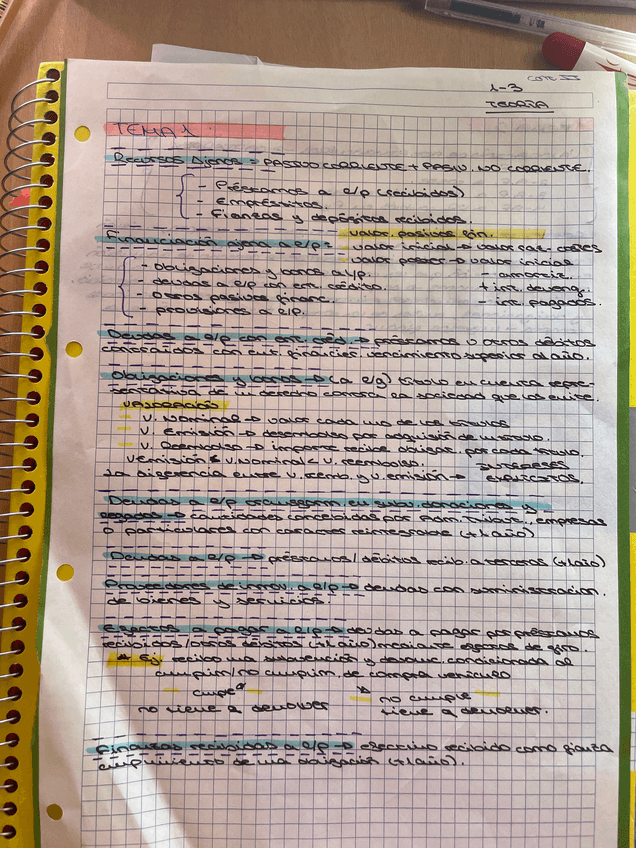 1-3
TEORÍA
TEMA 1.
Recursos Ajenos → PASIVO CORRIENTE + PASIVO NO CORRIENTE.
- Préstamos a l/p (recibidos)
- Empréstitos.
- Fianzas y depósitos recibidos.
valor. pasivos fin.
Financiación ajena a l/p: valor inicial → valor raz. - costes
valor poster → valor inicial
- Obligaciones y bonos a l/p. - amortiz.
- deudas a l/p con ent. crédito. + int. deveng.
- Otros pasivos financ. - int. pagados.
- provisiones a l/p.
Deudas a l/p con ent. créd. → préstamos u otros débitos
contraídos con ent. financier. vencimiento superior al año.
Obligaciones y bonos → (a l/p) título en cuenta repre-
sentativa de un derecho contra la sociedad que los emite.
VALORACIÓN
V. Nominal → valor cada uno de los títulos
V. Emisión → desembolso por adquisición de un título.
V. Reembolso → importe recibe obligac. por cada título.
V. emisión < V. nominal < V. reembolso. INTERESES
La diferencia entre V. remb. y V. emisión →
Deudas a l/p transform en subv, donaciones y
legados → cantidades concedidas por Adm. Públic., empresas
o particulares con carácter reintegrable (+1 año)
Deudas a l/p → préstamos/débitos recib. a terceros (+1 año)
Proveedores de inmov. a l/p → deudas con suministración.
de bienes y servicios.
Efectos a pagar a l/p → deudas a pagar por préstamos
recibidos/otros débitos (+1 año) mediante efectos de giro.
* Ej: recibo una subvención y devoluc. condicionada al
cumplim/no cumplim. de compra vehículo
cumple no cumple
no tiene q devolver tiene q devolver.
Fianzas recibidas a l/p → efectivo recibido como fianza
cumplimiento de una obligación (+1 año).